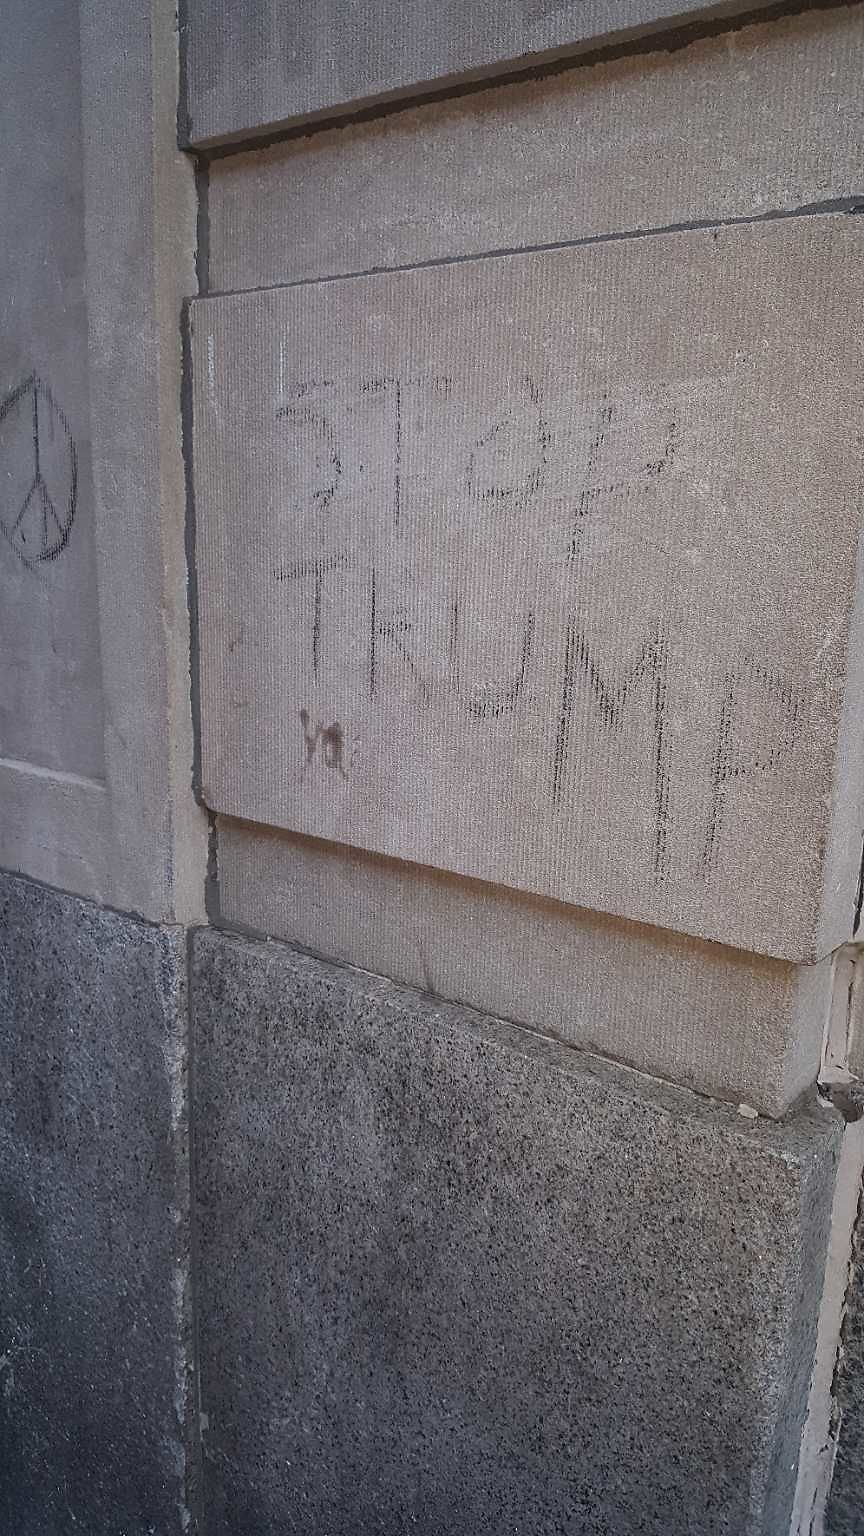 STOP
TRUMP
ya